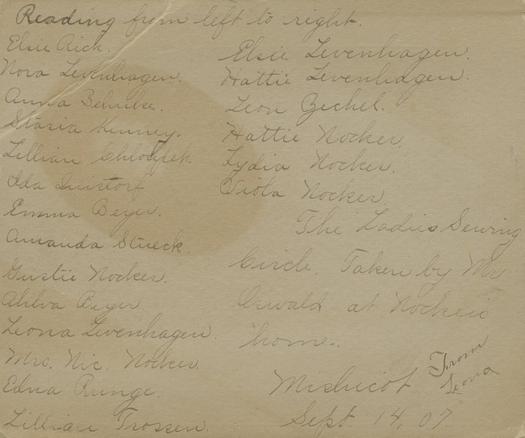 Reading from left to right.
Elsie Rick.
Nora Levenhagen.
Anna Behnke.
Stasia Kenney.
Lillian
Ida
Emma Beyer.
Amanda Stueck.
Gustie Nocker.
Ahlva Beyer
Leona Levenhagen.
Mrs. Nic. Nocker.
Edna Runge.
Lillian Trossen.
Elsie Levenhagen.
Hattie Levenhagen.
Leon Zechel.
Hattie Nocker.
Lydia Nocker.
Viola Nocker.
The Ladies Sewing
Circle. Taken by Mr
Oswald at Nockers
home.
Mishicot
Sept 14, 07
From
Leona